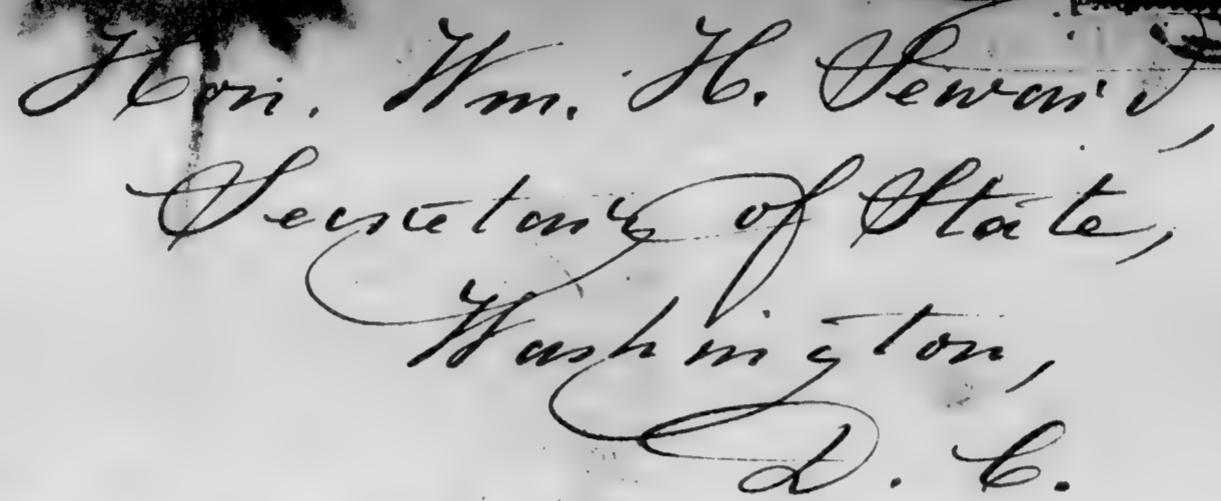 Hon. Wm. H. Seward,
Secretary of State,
Washington,
D. C.